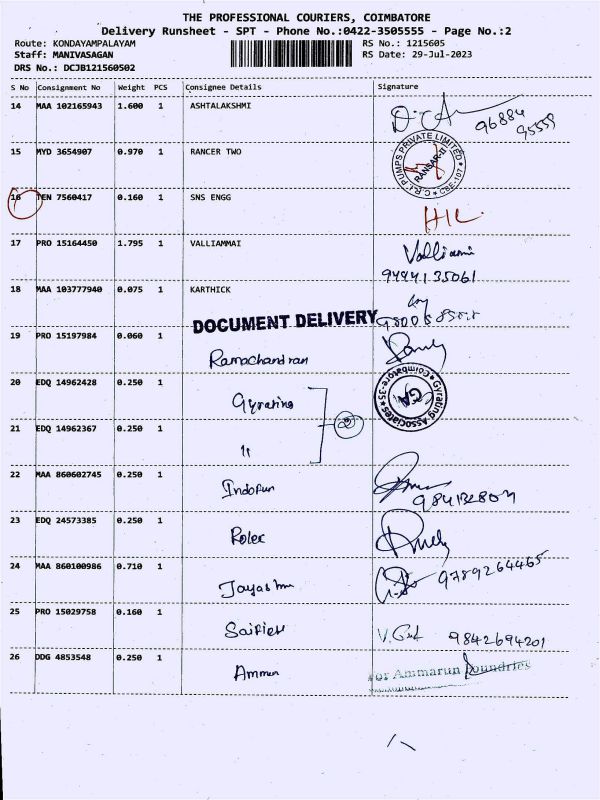 THE PROFESSIONAL COURIERS, COIMBATORE
Delivery Runsheet - SPT - Phone No.:0422-3505555 - Page No.:2
Route: KONDAYAMPALAYAM
RS No.: 1215605
Staff: MANIVASAGAN
RS Date: 29-Jul-2023
DRS No.: DCJB121560502
S No Consignment No Weight PCS Consignee Details Signature
14 MAA 102165943 1.600 1 ASHTALAKSHMI
96884
95559
15 MYD 3654907 0.970 1 RANCER TWO
C.R.I. PUMPS PRIVATE LIMITED
RANSAR-II
CBE-107
16 TEN 7560417 0.160 1 SNS ENGG
17 PRO 15164450 1.795 1 VALLIAMMAI
9444135061
18 MAA 103777940 0.075 1 KARTHICK
DOCUMENT DELIVERY
19 PRO 15197984 0.060 1 Ramachandran
20 EDQ 14962428 0.250 1 Gyrating
Gyrating Associates
Coimbatore-35
GA
21 EDQ 14962367 0.250 1 11
22 MAA 860602745 0.250 1
23 EDQ 24573385 0.250 1 Rolex
24 MAA 860100986 0.710 1
9789264465
25 PRO 15029758 0.160 1
9842694201
26 DDG 4853548 0.250 1
For Ammarun Foundries